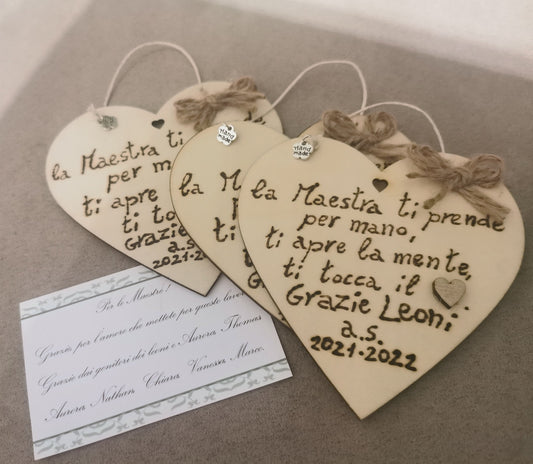 la Maestra ti
per m
ti apre
ti to
Grazie
a.s.
2021-20
Hand
made
la M
ti
Hand
made
la Maestra ti prende
per mano,
ti apre la mente,
ti tocca il
Grazie Leoni
a.s.
2021-2022
Per le Maestre!
Grazie, per l'amore che mettete per questo lavoro
Grazie dai genitori dei leoni e Aurora, Thomas
Aurora, Nathan, Chiara, Vanessa, Marco.